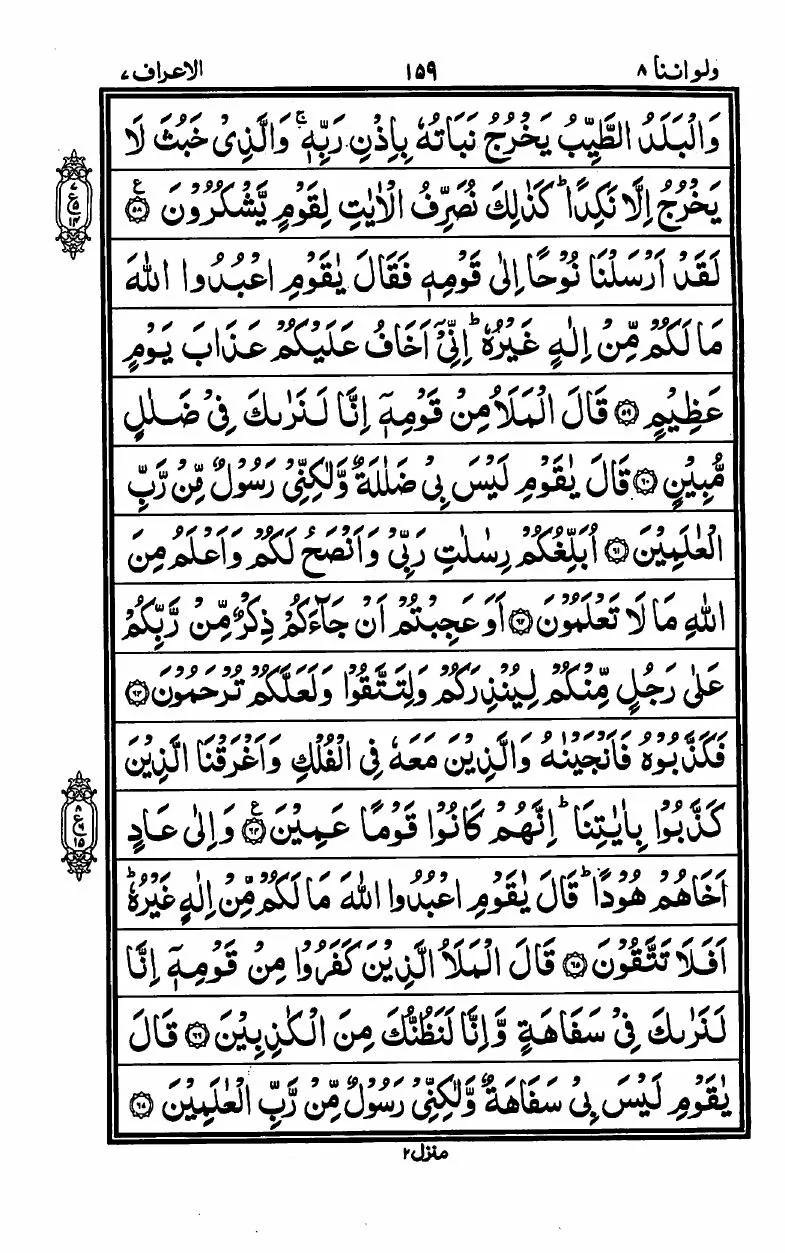 ولواننا ٨ ١٥٩ الاعراف ٧
وَالْبَلَدُ الطَّيِّبُ يَخْرُجُ نَبَاتُهٗ بِاِذْنِ رَبِّهٖ ۚ وَالَّذِىْ خَبُثَ لَا
يَخْرُجُ اِلَّا نَكِدًا ؕ كَذٰلِكَ نُصَرِّفُ الْاٰيٰتِ لِقَوْمٍ يَّشْكُرُوْنَ ﴿٥٨﴾ ع
لَقَدْ اَرْسَلْنَا نُوْحًا اِلٰى قَوْمِهٖ فَقَالَ يٰقَوْمِ اعْبُدُوا اللّٰهَ
مَا لَكُمْ مِّنْ اِلٰهٍ غَيْرُهٗ ؕ اِنِّىْۤ اَخَافُ عَلَيْكُمْ عَذَابَ يَوْمٍ
عَظِيْمٍ ﴿٥٩﴾ قَالَ الْمَلَاُ مِنْ قَوْمِهٖۤ اِنَّا لَنَرٰىكَ فِىْ ضَلٰلٍ
مُّبِيْنٍ ﴿٦٠﴾ قَالَ يٰقَوْمِ لَيْسَ بِىْ ضَلٰلَةٌ وَّلٰكِنِّىْ رَسُوْلٌ مِّنْ رَّبِّ
الْعٰلَمِيْنَ ﴿٦١﴾ اُبَلِّغُكُمْ رِسٰلٰتِ رَبِّىْ وَاَنْصَحُ لَكُمْ وَاَعْلَمُ مِنَ
اللّٰهِ مَا لَا تَعْلَمُوْنَ ﴿٦٢﴾ اَوَعَجِبْتُمْ اَنْ جَآءَكُمْ ذِكْرٌ مِّنْ رَّبِّكُمْ
عَلٰى رَجُلٍ مِّنْكُمْ لِيُنْذِرَكُمْ وَلِتَتَّقُوْا وَلَعَلَّكُمْ تُرْحَمُوْنَ ﴿٦٣﴾
فَكَذَّبُوْهُ فَاَنْجَيْنٰهُ وَالَّذِيْنَ مَعَهٗ فِى الْفُلْكِ وَاَغْرَقْنَا الَّذِيْنَ
كَذَّبُوْا بِاٰيٰتِنَا ؕ اِنَّهُمْ كَانُوْا قَوْمًا عَمِيْنَ ﴿٦٤﴾ ع وَاِلٰى عَادٍ
اَخَاهُمْ هُوْدًا ؕ قَالَ يٰقَوْمِ اعْبُدُوا اللّٰهَ مَا لَكُمْ مِّنْ اِلٰهٍ غَيْرُهٗ ؕ
اَفَلَا تَتَّقُوْنَ ﴿٦٥﴾ قَالَ الْمَلَاُ الَّذِيْنَ كَفَرُوْا مِنْ قَوْمِهٖۤ اِنَّا
لَنَرٰىكَ فِىْ سَفَاهَةٍ وَّاِنَّا لَنَظُنُّكَ مِنَ الْكٰذِبِيْنَ ﴿٦٦﴾ قَالَ
يٰقَوْمِ لَيْسَ بِىْ سَفَاهَةٌ وَّلٰكِنِّىْ رَسُوْلٌ مِّنْ رَّبِّ الْعٰلَمِيْنَ ﴿٦٧﴾
منزل ٢